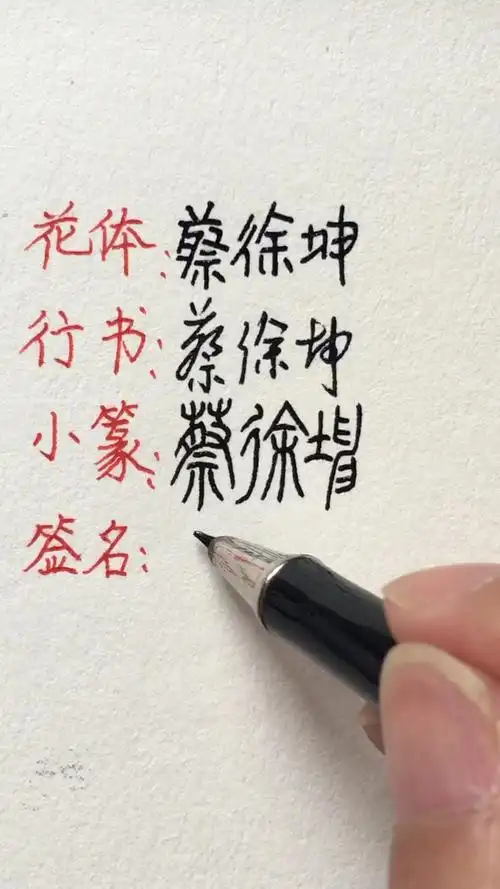 花体:蔡徐坤
行书:蔡徐坤
小篆:蔡徐坤
签名: